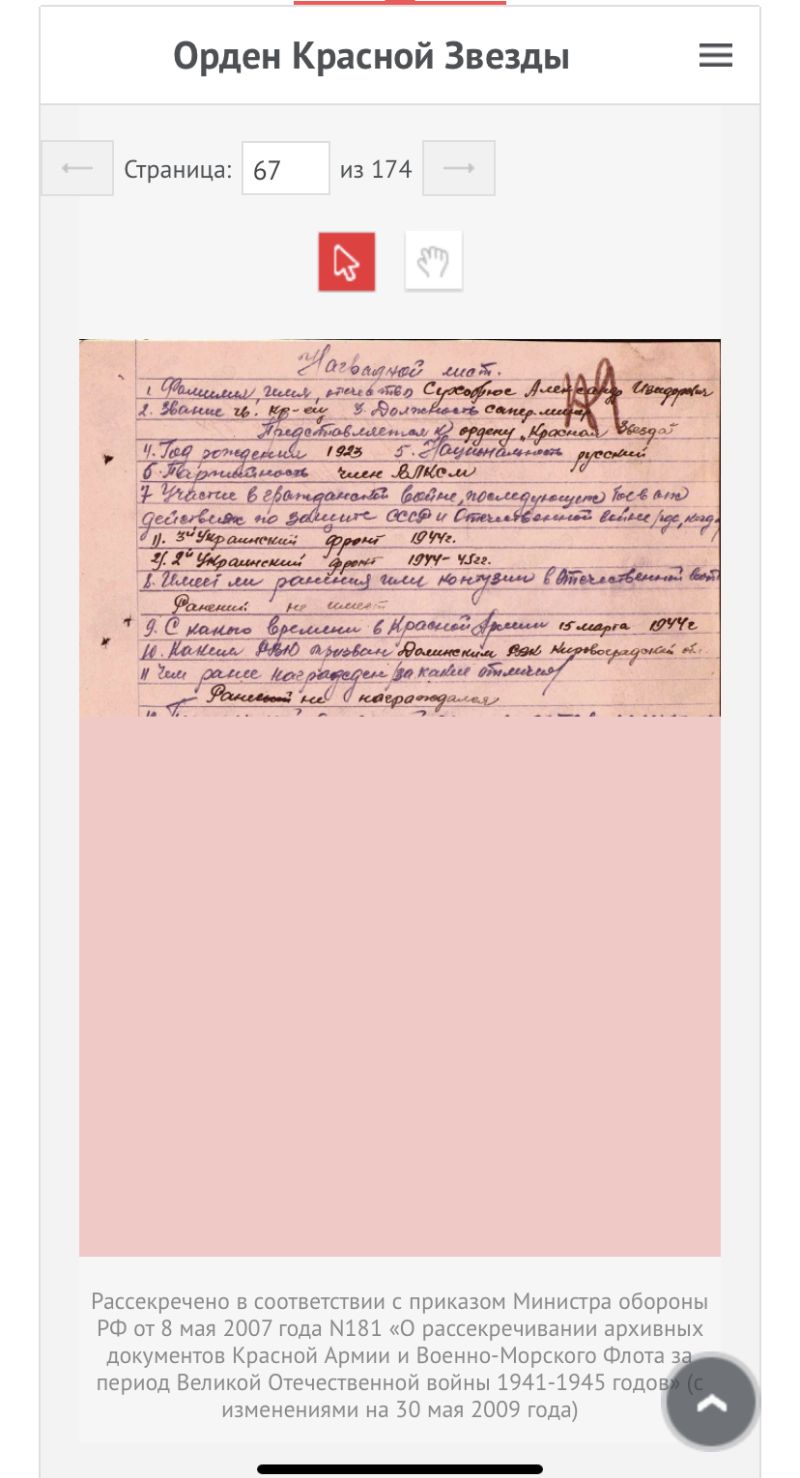 Орден Красной Звезды
Страница: 67 из 174
Наградной лист.
1. Фамилия, имя, отчество Александр Изидорович
2. Звание гв. кр-ец 3. Должность сапер-минер
Представляется к ордену „Красная Звезда"
4. Год рождения 1923 5. Национальность русский
6. Партийность член ВЛКСМ
7 Участие в гражданской войне, последующем
действиях по защите СССР и Отечественной войне (где, когда
1). 3й Украинский фронт 1944г.
2). 2й Украинский фронт 1944-45гг.
8. Имеет ли ранения или контузии в Отечественной
Ранений не имеет
9. С какого времени в Красной Армии 15 марта 1944г
10. Каким РВК призван Долинским РВК Кировоградской об.
11 Чем ранее награжден (за какие отличия)
не награждался
Рассекречено в соответствии с приказом Министра обороны
РФ от 8 мая 2007 года N181 «О рассекречивании архивных
документов Красной Армии и Военно-Морского Флота за
период Великой Отечественной войны 1941-1945 годов» (с
изменениями на 30 мая 2009 года)